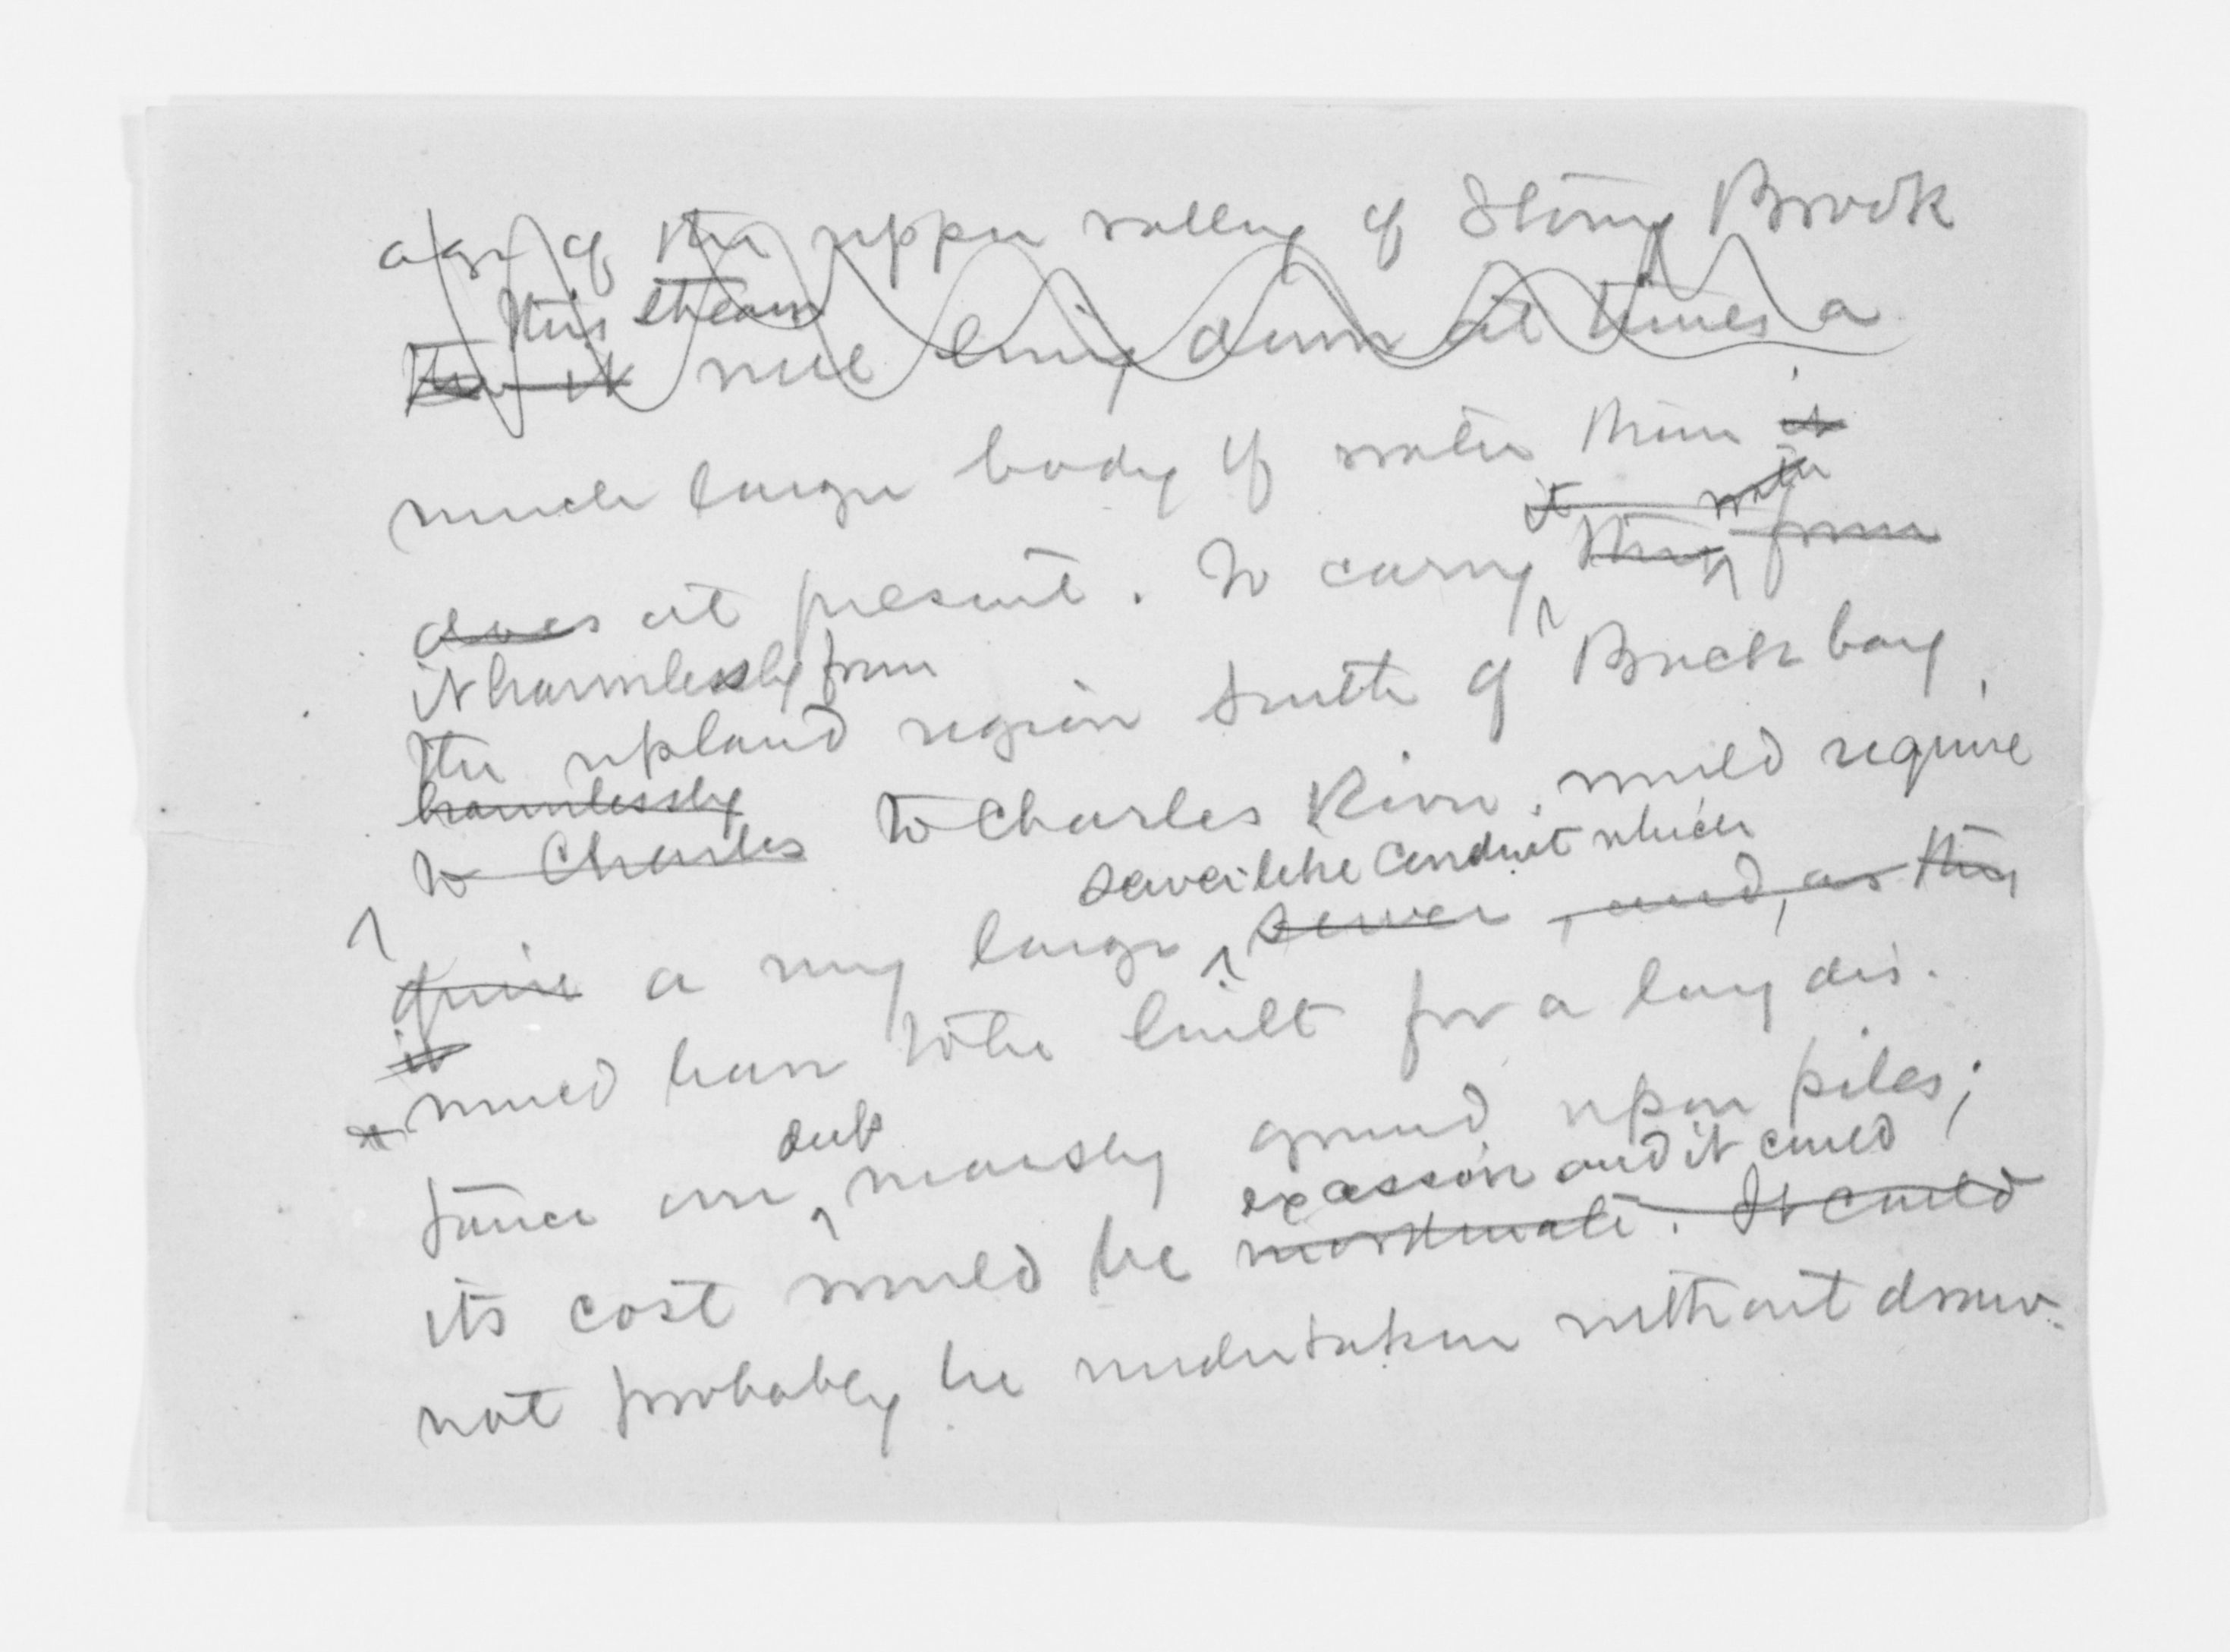 age of the upper valley of Stony Brook
This stream
will bring down at times a
much larger body of water than it
it water
does at present. To carry this from
it harmlessly from
the upland region south of Back bay
harmlessly
to Charles to Charles River, would require
sewerlike conduit which
quire a very large sewer, and, as this
it
would have to be built for a long dis-
deep
tance on marshy ground upon piles;
excessive and it could
its cost would be It could
not probably be undertaken without draw-